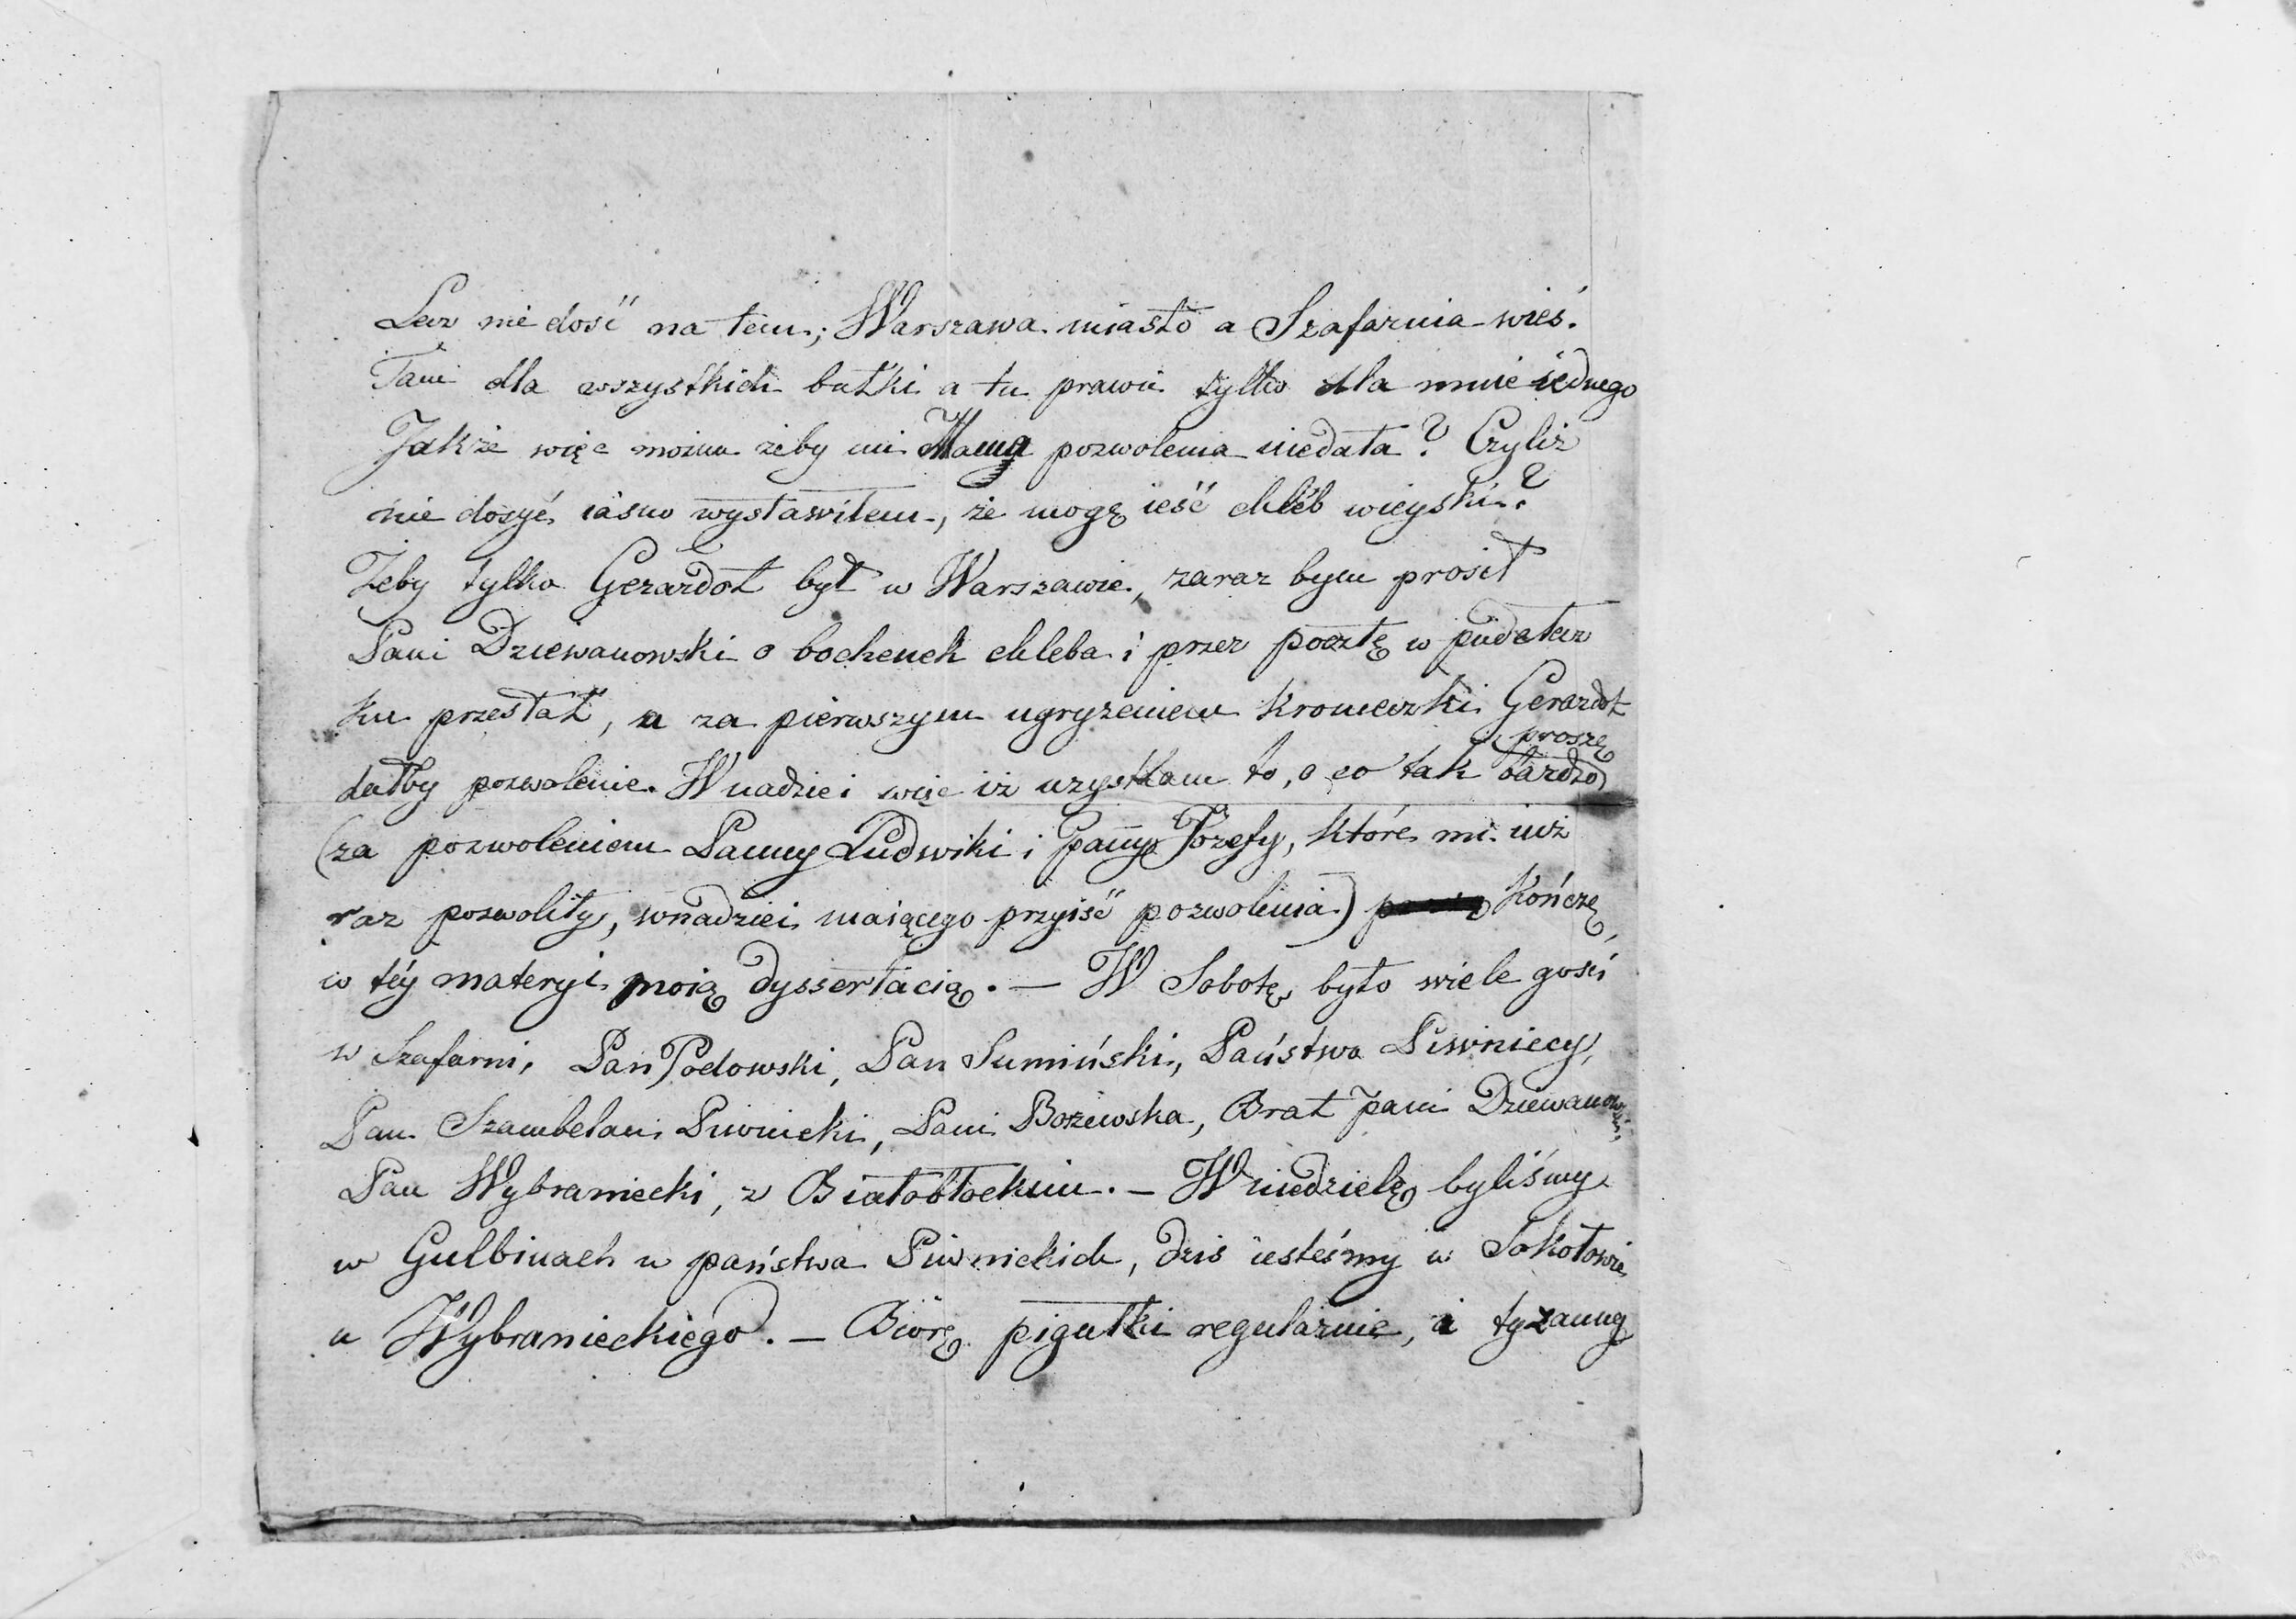 Lecz nie dość na tem; Warszawa miasto a Szafarnia wieś.
Tam dla wszystkich bułki a tu prawie tylko dla mnie iednego
Jakże więc można żeby mi Mama pozwolenia niedała? Czyliż
nie dosyć iasno wystawiłem, że mogę ieść chléb wieyski?
Żeby tylko Gerardot był w Warszawie, zaraz bym prosił
Pani Dziewanowski o bochenek chleba i przez pocztę w pudełecz
ku przesłał, a za pierwszym ugryzeniem kromeczki Gerardot
proszę
dałby pozwolenie. W nadziei więc iż uzyskam to, o co tak bardzo
(za pozwoleniem Panny Ludwiki i panny Józefy, które mi iuż
raz pozwoliły, wnadziei maiącego przyiść pozwolenia) Kończę,
w téy materyi moią dyssertacią. — W Sobotę było wiele gości
w Szafarni, Pan Podowski, Pan Sumiński, Państwo Piwniccy,
Pan Szambelan Piwnicki, Pani Bożewska, Brat pani Dziewanowski,
Pan Wybraniecki, z Białobłockim. — W niedzielę byliśmy
w Gulbinach u państwa Piwnickich, dziś iesteśmy w Sokołowie
u Wybranieckiego. — Biorę pigułki regularnie, i tyzannę